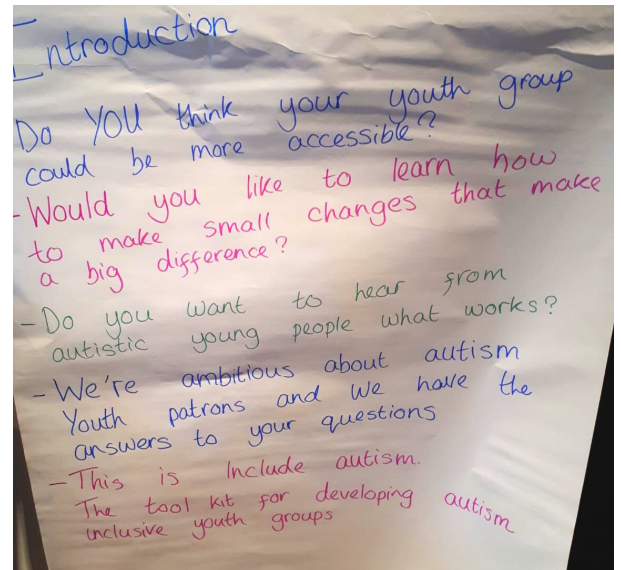 Introduction
Do YOU think your youth group
could be more accessible?
- Would you like to learn how
to make small changes that make
a big difference?
- Do you want to hear from
autistic young people what works?
- We're ambitious about autism
Youth patrons and we have the
answers to your questions
- This is Include autism.
The tool kit for developing autism
inclusive youth groups